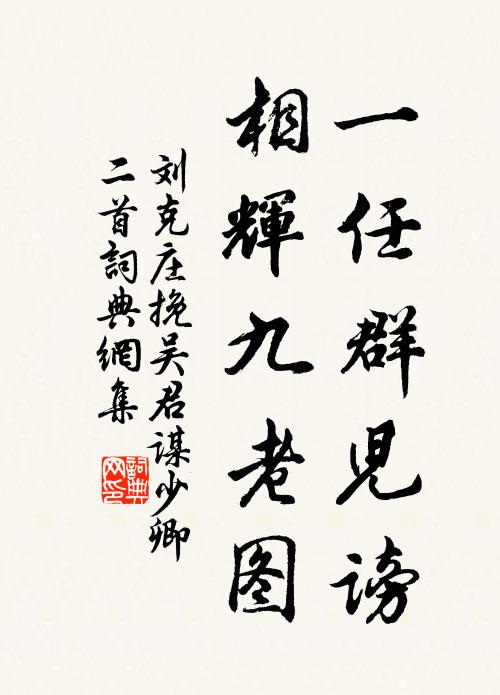 一任群児謗
相輝九老图
刘克庄挽吴君谋少卿
二首詞典網集
詞典
网印